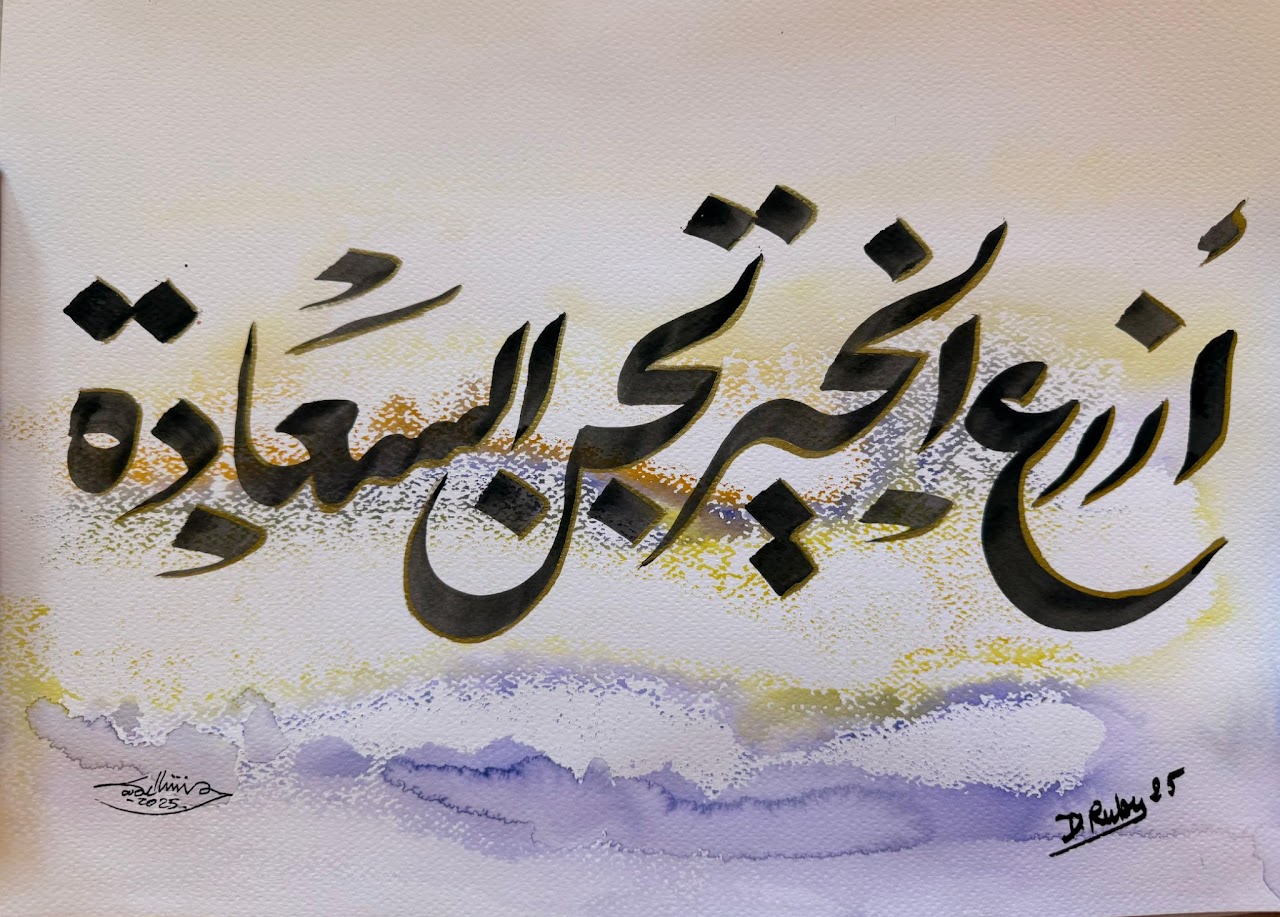 أزرع الخير تجن السعادة
2025
D. Ruby 25